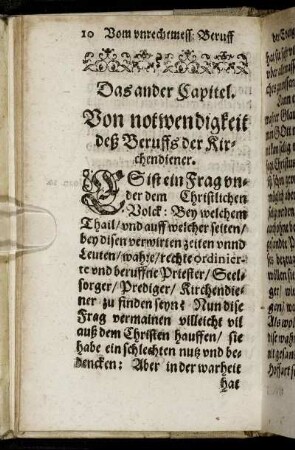 10 Vom vnrechtmess: Beruff
Das ander Capitel.
Von notwendigkeit
deß Beruffs der Kir-
chendiener.
ES ist ein Frag vn-
der dem Christlichen
Volck: Bey welchem
Thail/ vnd auff welcher seiten/
bey disen verwirten zeiten vnnd
Leuten/ wahre/ rechte ordinier-
te vnd beruffne Priester/ Seel-
sorger/ Prediger/ Kirchendie-
ner zu finden seyn? Nun dise
Frag vermainen villeicht vil
auß dem Christen hauffen/ sie
habe ein schlechten nutz vnd be-
dencken: Aber in der warheit
hat